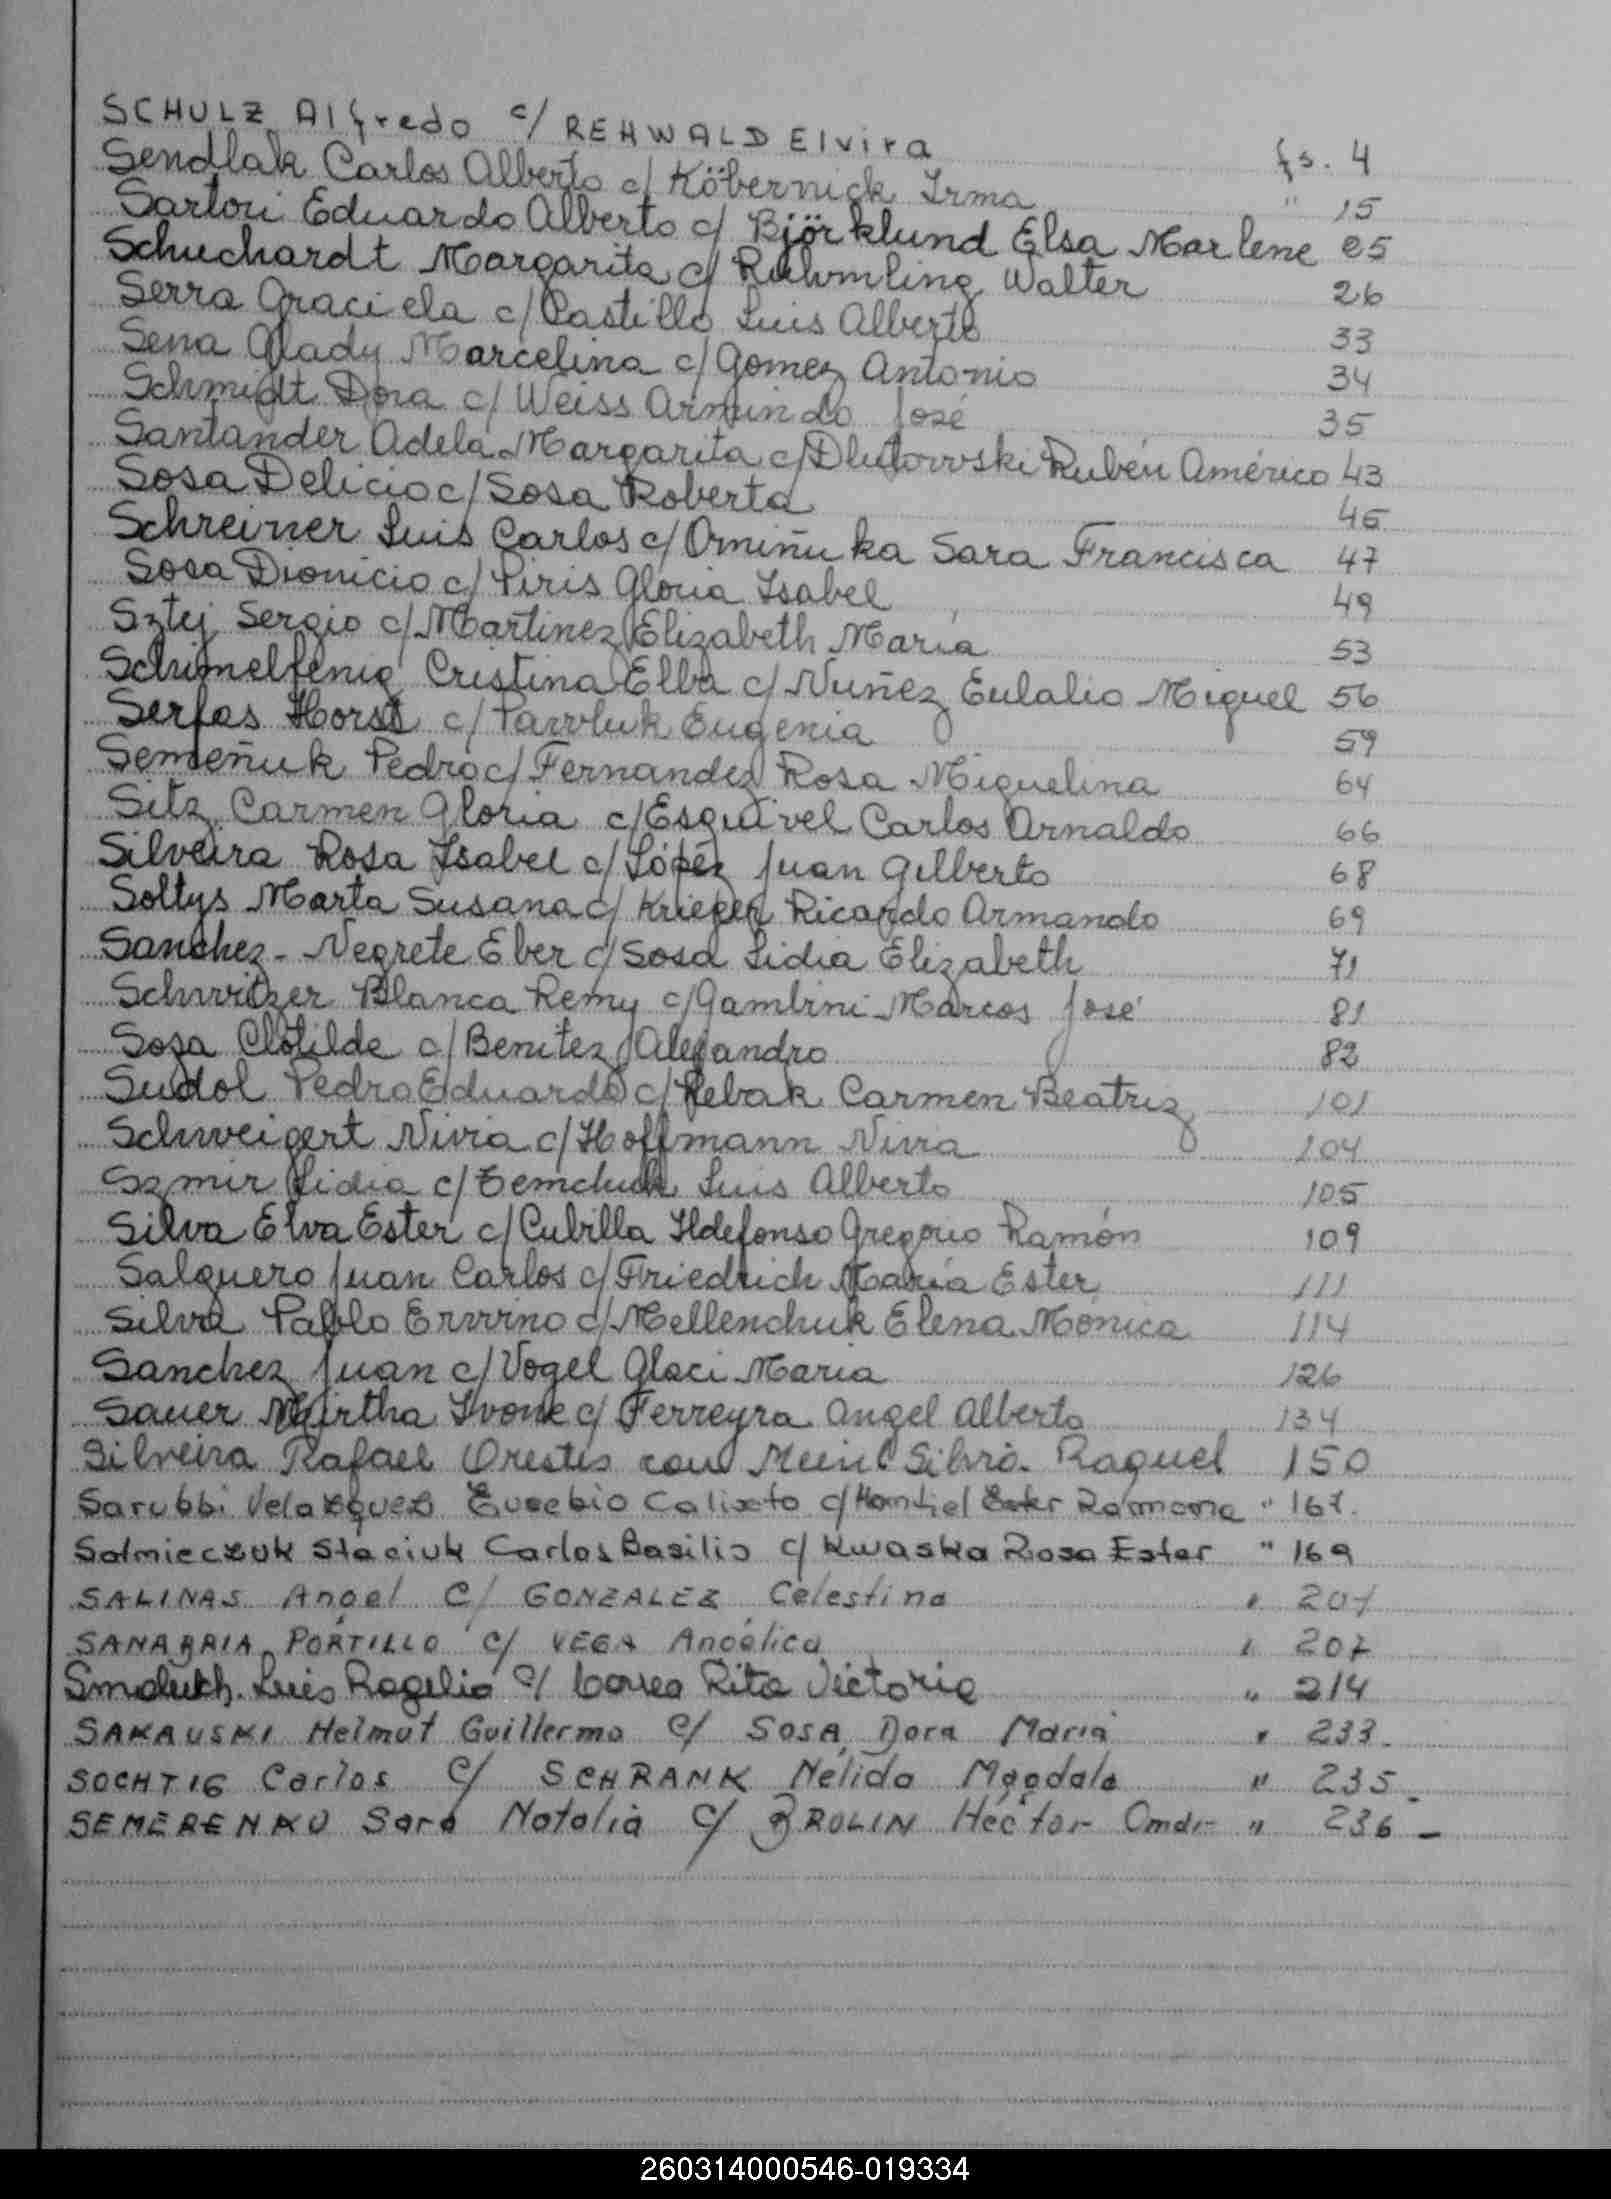 SCHULZ Alfredo c/ REHWALD Elvira fs. 4
Sendlak Carlos Alberto c/ Köbernick Irma " 15
Sartori Eduardo Alberto c/ Björklund Elsa Marlene 25
Schuchardt Margarita c/ Ruhmling Walter 26
Serra Graciela c/ Castillo Luis Alberto 33
Sena Glady Marcelina c/ Gomez Antonio 34
Schmidt Dora c/ Weiss Armindo José 35
Santander Adela Margarita c/ Dlutowski Rubén Américo 43
Sosa Delicio c/ Sosa Roberta 45
Schreiner Luis Carlos c/ Omiñuka Sara Francisca 47
Sosa Dionicio c/ Piris Gloria Isabel 49
Sztej Sergio c/ Martinez Elizabeth María 53
Schimelfenig Cristina Elba c/ Nuñez Eulalio Miguel 56
Serfas Horst c/ Pawluk Eugenia 59
Semeñuk Pedro c/ Fernandez Rosa Miguelina 64
Sitz Carmen Gloria c/ Esquivel Carlos Arnaldo 66
Silveira Rosa Isabel c/ López Juan Gilberto 68
Soltys Marta Susana c/ Krieger Ricardo Armando 69
Sanchez - Negrete Eber c/ Sosa Lidia Elizabeth 71
Schwitzer Blanca Remy c/ Gambini Marcos José 81
Soza Clotilde c/ Benitez Alejandro 82
Sudol Pedro Eduardo c/ Rebak Carmen Beatriz 101
Schweigert Nivia c/ Hoffmann Nivia 104
Szmir Lidia c/ Zemchuk Luis Alberto 105
Silva Elva Ester c/ Cubilla Ildefonso Gregorio Ramón 109
Salguero Juan Carlos c/ Friedrich María Ester 111
Silva Pablo Erwino c/ Mellenchuk Elena Mónica 114
Sanchez Juan c/ Vogel Glaci Maria 126
Sauer Mirtha Ivone c/ Ferreyra Angel Alberto 134
Silveira Rafael Orestes con Silvia Raquel 150
Sarubbi Velazquez Eusebio Calixto c/ Ester Ramona " 167.
Solmieczuk Staciuk Carlos Basilio c/ Kwaska Rosa Ester " 169
SALINAS Angel C/ GONZALEZ Celestina " 201
SANABRIA PORTILLO c/ VEGA Angélica " 207
Luis Rogelio c/ Correa Rita Victoria " 214
SAKAUSKI Helmut Guillermo c/ SOSA Dora Maria " 233.
SOCHTIG Carlos c/ SCHRANK Nelida Magdala " 235.
SEMERENKO Sara Natalia c/ BROLIN Héctor Omar " 236 -
260314000546-019334